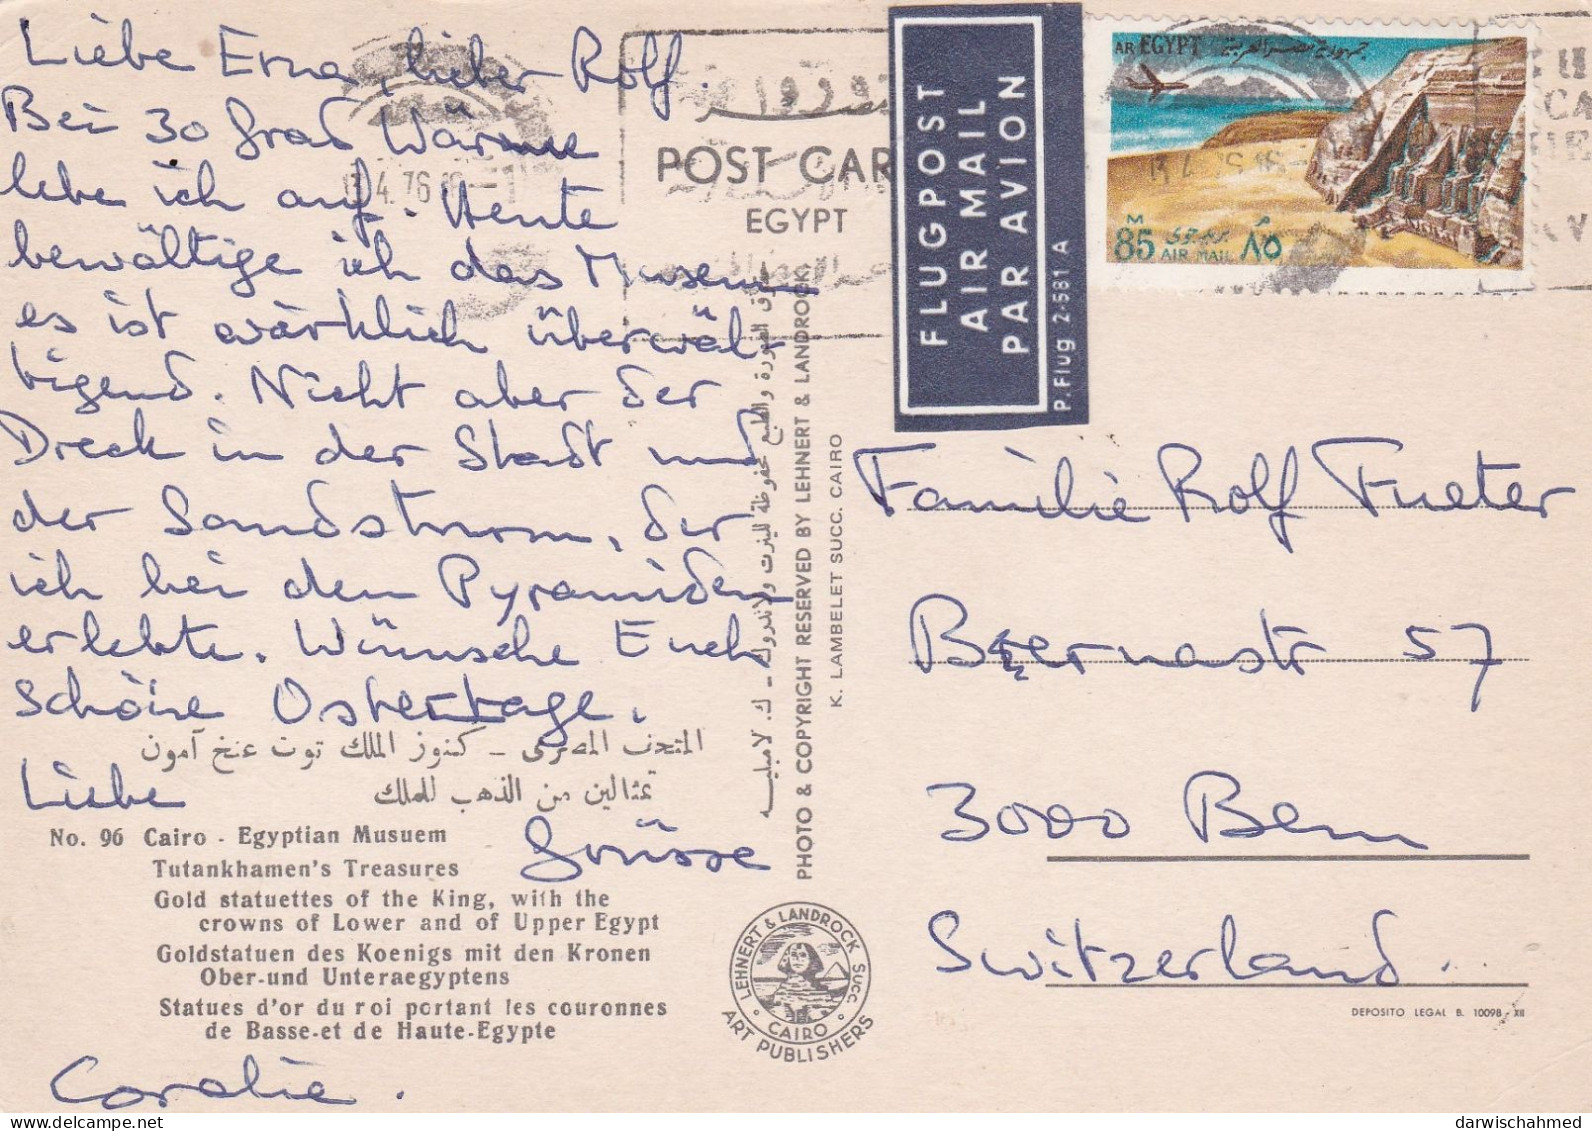 Liebe Erna, lieber Rolf.
Bei 30 Grad Wärme
lebe ich auf. Heute
bewältige ich das Museum
es ist wärklich überwäl-
tigend. Nicht aber der
Dreck in der Stadt und
der Sandsturm, der
ich bei den Pyramiden
erlebte. Wünsche Euch
schöne Ostertage.
Liebe
Grüsse
Coralie.
المتحف المصرى - كنوز الملك توت عنخ آمون
تمثالين من الذهب للملك
No. 96 Cairo - Egyptian Musuem
Tutankhamen's Treasures
Gold statuettes of the King, with the
crowns of Lower and of Upper Egypt
Goldstatuen des Koenigs mit den Kronen
Ober-und Unteraegyptens
Statues d'or du roi portant les couronnes
de Basse-et de Haute-Egypte
POST CAR
EGYPT
4.76
PHOTO & COPYRIGHT RESERVED BY LEHNERT & LANDROCK
K. LAMBELET SUCC. CAIRO
LEHNERT & LANDROCK SUCC.
CAIRO
ART PUBLISHERS
FLUGPOST
AIR MAIL
PAR AVION
P. Flug 2-581 A
AR EGYPT جمهورية مصر العربية
M
85 بريد جوى ٨٥ م
AIR MAIL
Familie Rolf Fueter
Bernastr 57
3000 Bern
Switzerland.
DEPOSITO LEGAL B. 10098-XII
darwischahmed